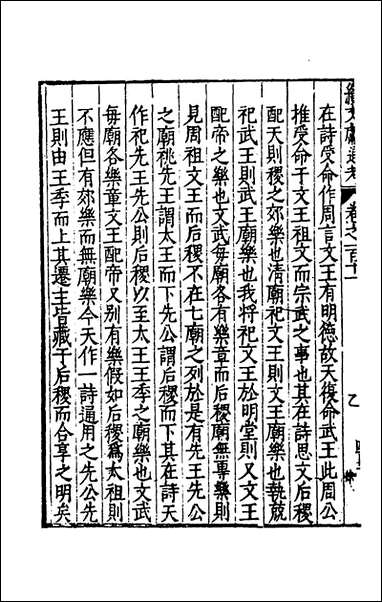 續文獻通考
卷之一百十一
乙
在詩受命作周言文王有明德故天復命武王此周公
推受命于文王祖文而宗武之事也其在詩思文后稷
配天則稷之郊樂也清廟祀文王則文王廟樂也執競
祀武王則武王廟樂也我將祀文王於明堂則又文王
配帝之樂也文武每廟各有樂章而后稷廟無專樂則
見周祖文王而后稷不在七廟之列於是有先王先公
之廟祧先王謂太王而下先公謂后稷而下其在詩天
作祀先王先公則后稷以至太王王季之廟樂也文武
每廟各樂章文王配帝又別有樂假如后稷爲太祖則
不應但有郊樂而無廟樂今天作一詩通用之先公先
王則由王季而上其遷主皆藏于后稷而合享之明矣